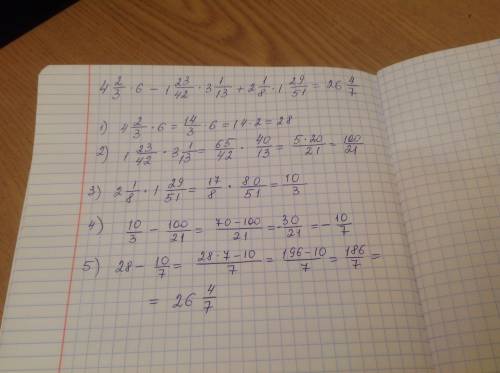 4 2/3 · 6 − 1 23/42 · 3 1/13 + 2 1/8 · 1 29/51 = 26 4/7
1) 4 2/3 · 6 = 14/3 · 6 = 14 · 2 = 28
2) 1 23/42 · 3 1/13 = 65/42 · 40/13 = 5·20/21 = 100/21
3) 2 1/8 · 1 29/51 = 17/8 · 80/51 = 10/3
4) 10/3 − 100/21 = 70−100/21 = 30/21 = − 10/7
5) 28 − 10/7 = 28·7−10/7 = 196−10/7 = 186/7 =
= 26 4/7